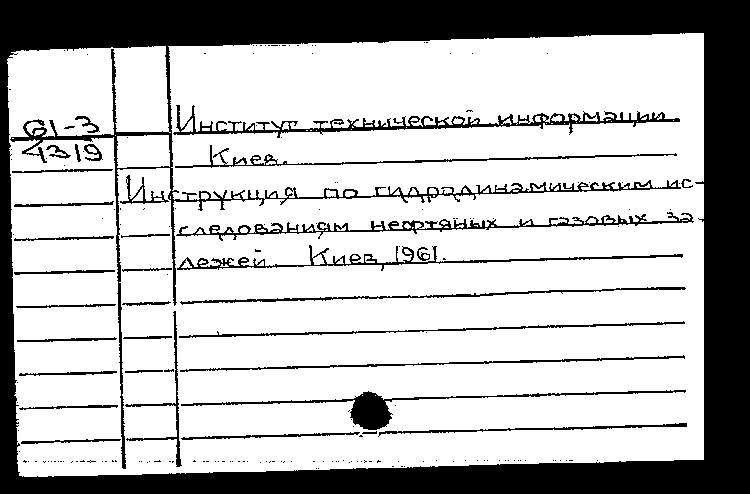 61-3
4319
Институт технической информации
Киев.
Инструкция по гидродинамическим ис-
следованиям нефтяных и газовых за-
лежей. Киев, 1961.